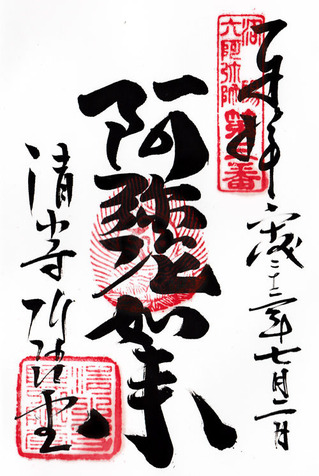 奉拝
洛陽
六阿弥陀
第三番
平成二十三年七月二日
阿弥陀如来
清水寺 阿弥陀堂